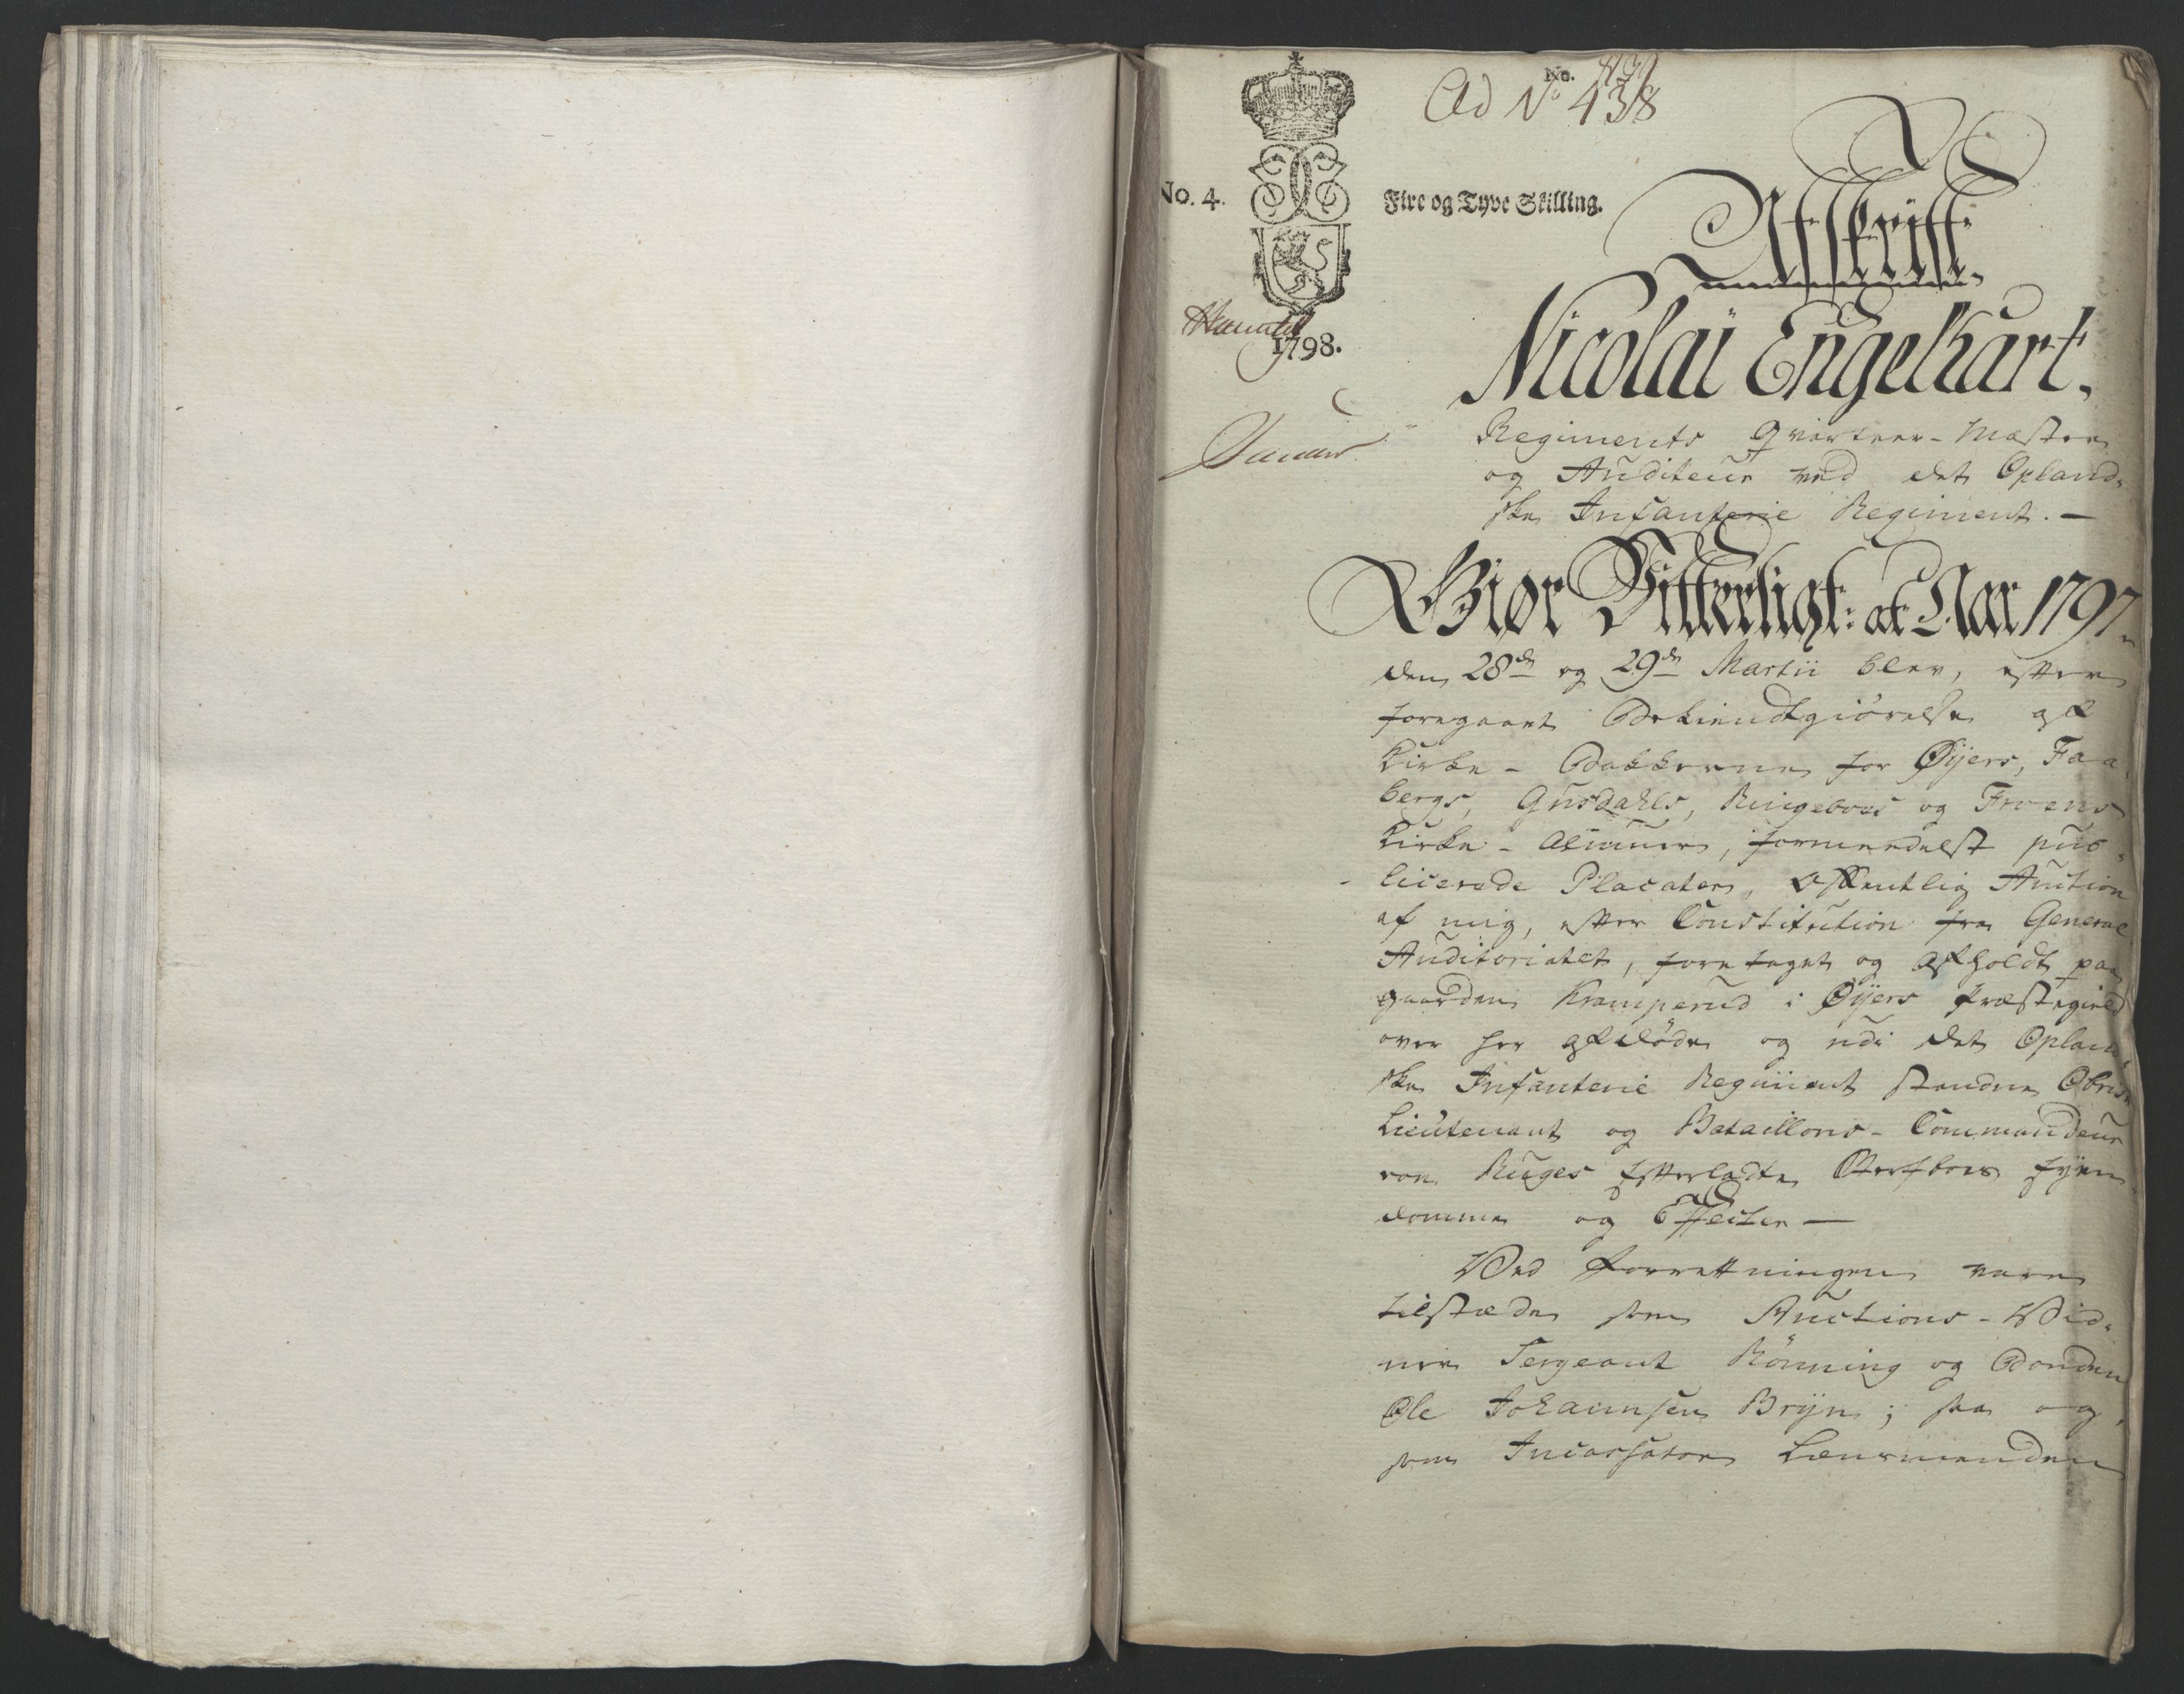 Ad No 438
No.
No. 4.
Fire og Tyve Skilling.
Afskrift.
1798.
Nicolai Engelhart,
Regiments Qvarteer-Mæster
og Auditeur ved det Opland-
ske Infanterie Regiment. —
Giør Vitterligt: at Aar 1797
den 28de og 29de Martii blev, efter
foregaaet Bekiendtgiørelse af
Kirke-Bakkerne for Øyers, Faa-
bergs, Gusdahls, Ringeboes og Froens
Kirke-Almuer, formedelst pub-
licerede Placater, offentlig Auction
af mig, efter Constitution fra General
Auditoriatet, foretaget og afholdt paa
gaarden Kramperud i Øyers Præstegield
over her afdøde og udi det Opland-
ske Infanterie Regiment staaende Obrist
Lieutenant og Bataillons-Commandeur
von Ruges Efterladte Sterfboes Eyen-
domme og Effecter —
Ved Forretningen vare
tilstæde som Auctions-Vid-
ner Sergeant Rönning og Bonden
Ole Johannsen Bryn; saa og,
som Incassator Lænsmanden